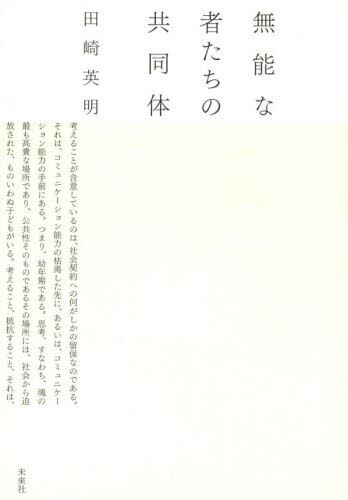 無能な
者たちの
共同体
田崎英明
考えることが含意しているのは、社会契約への何がしかの留保なのである。
それは、コミュニケーション能力の枯渇した先に、あるいは、コミュニケー
ション能力の手前にある。つまり、幼年期である。思考、すなわち、魂の
最も高貴な場所であり、公共性そのものであるその場所には、社会から追
放された、ものいわぬ子どもがいる。考えること、抵抗すること、それは、
未来社